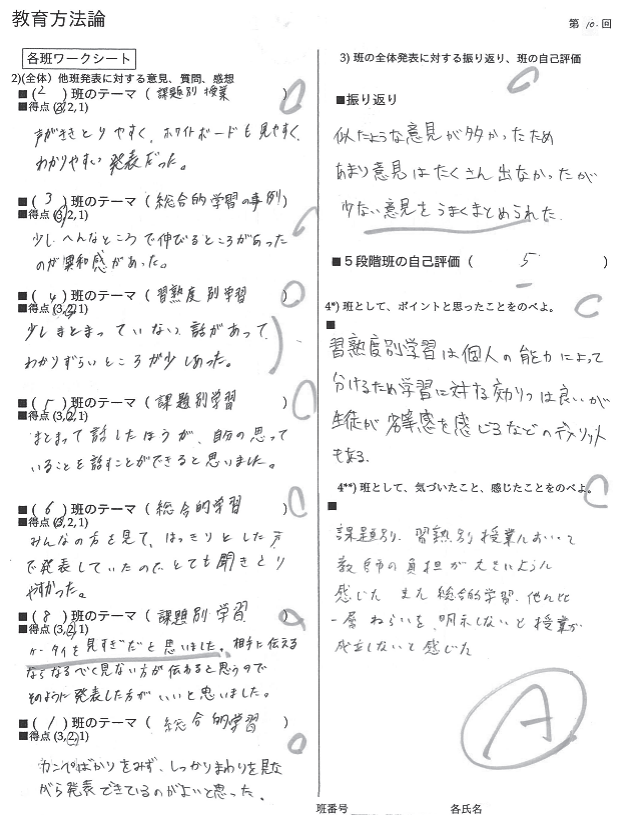 教育方法論
第 10. 回
各班ワークシート
2)(全体) 他班発表に対する意見、質問、感想
■( 2 )班のテーマ( 課題別 授業 )
■得点 (3, 2, 1)
声がききとりやすく、ホワイトボードも見やすく、
わかりやすい 発表だった。
■( 3 )班のテーマ( 総合的学習の事例)
■得点 (3, 2, 1)
少し へんなところで伸びるところがあった
のが異和感があった。
■( 4 )班のテーマ( 習熟度別学習 )
■得点 (3, 2, 1)
少し まとまっていない 話があって、
わかりずらいところが少しあった。
■( 5 )班のテーマ( 課題別学習 )
■得点 (3, 2, 1)
まとまって話したほうが、自分の思って
いることを話すことができると思いました。
■( 6 )班のテーマ( 総合的学習 )
■得点 (3, 2, 1)
みんなの方を見て、はっきりとした声
で発表していたので、とても聞きとり
やすかった。
■( 8 )班のテーマ( 課題別 学習 )
■得点 (3, 2, 1)
ケータイを見すぎだと思いました。相手に伝える
ならなるべく見ない方が伝わると思うので
そのように発表した方がいいと思いました。
■( 1 )班のテーマ( 総合的学習 )
■得点 (3, 2, 1)
カンペばかりをみず、しっかりまわりを見な
がら発表できているのがよいと思った。
3) 班の全体発表に対する振り返り、班の自己評価
■振り返り
似たような意見が多かったため
あまり意見はたくさん出なかったが
少ない意見をうまくまとめられた.
■5段階班の自己評価( 5 )
4*) 班として、ポイントと思ったことをのべよ。
■
習熟度別学習は個人の能力によって
分けるため学習に対する効りつは良いが
生徒が劣等感を感じるなどのデメリット
もある.
4**) 班として、気づいたこと、感じたことをのべよ。
■
課題別、習熟別 授業において
教師の負担が大きいように
感じた また 総合的学習. 他に比
一層 ねらいを、明示しないと授業が
成立しないと感じた
A
班番号
各氏名